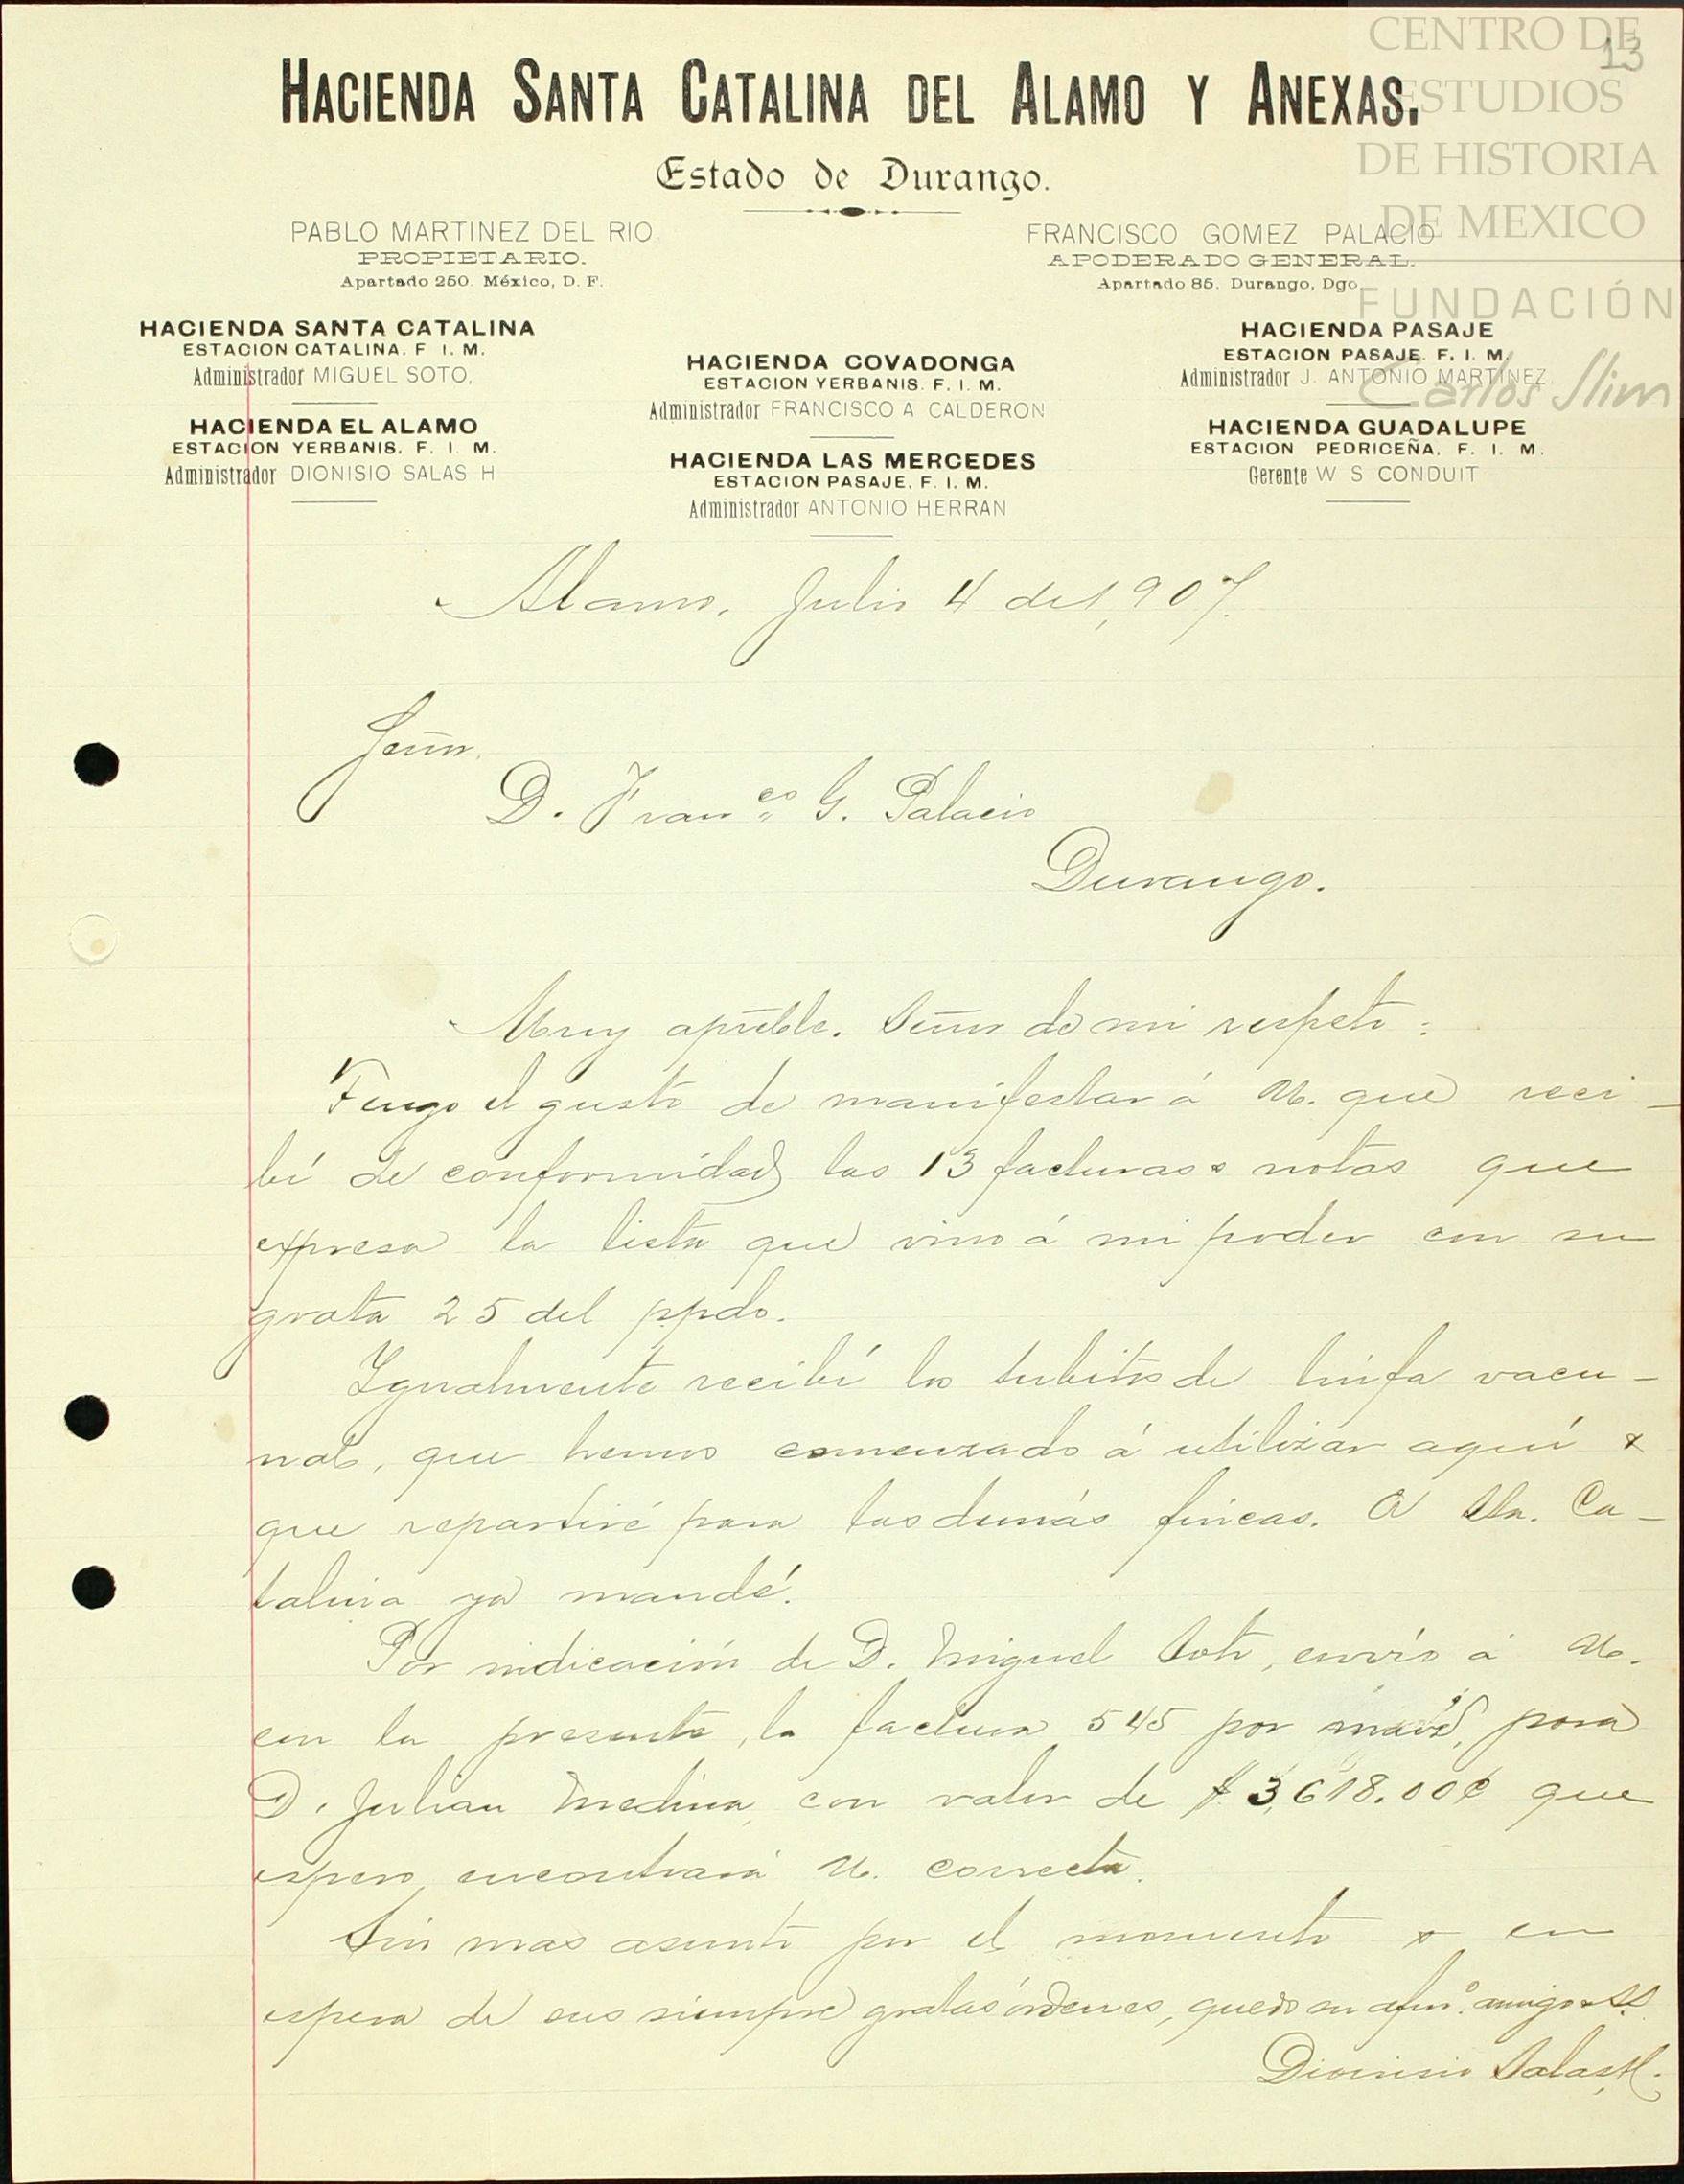 CENTRO DE
ESTUDIOS
DE HISTORIA
DE MEXICO
FUNDACIÓN
Carlos Slim
13
HACIENDA SANTA CATALINA DEL ALAMO Y ANEXAS.
Estado de Durango.
PABLO MARTINEZ DEL RIO
PROPIETARIO.
Apartado 250. México, D. F.
FRANCISCO GOMEZ PALACIO
APODERADO GENERAL.
Apartado 85. Durango, Dgo.
HACIENDA SANTA CATALINA
ESTACION CATALINA. F. I. M.
Administrador MIGUEL SOTO.
HACIENDA EL ALAMO
ESTACION YERBANIS. F. I. M.
Administrador DIONISIO SALAS H
HACIENDA COVADONGA
ESTACION YERBANIS. F. I. M.
Administrador FRANCISCO A CALDERON
HACIENDA LAS MERCEDES
ESTACION PASAJE. F. I. M.
Administrador ANTONIO HERRAN
HACIENDA PASAJE
ESTACION PASAJE. F. I. M.
Administrador J. ANTONIO MARTINEZ
HACIENDA GUADALUPE
ESTACION PEDRICEÑA. F. I. M.
Gerente W S CONDUIT
Alamo, Julio 4 de 1,907.
Señor.
D. Franco. G. Palacio
Durango.
Muy apreble. Señor de mi respeto:
Tengo el gusto de manifestar á U. que reci-
bí de conformidad las 13 facturas & notas que
expresa la lista que vino á mi poder con su
grata 25 del ppdo.
Igualmente recibí los tubitos de linfa vacu-
nal, que hemos comenzado á utilizar aquí &
que repartiré para las demás fincas. A Sta. Ca-
talina ya mandé.
Por indicación de D. Miguel Soto, envío á U.
con la presente, la factura 545 por maíz, para
D. Julian Medina, con valor de $3,618.00¢ que
espero encontrará U. correcta.
Sin mas asunto por el momento & en
espera de sus siempre gratas órdenes, quedo su afmo. amigo & S.S.
Dionisio Salas H.